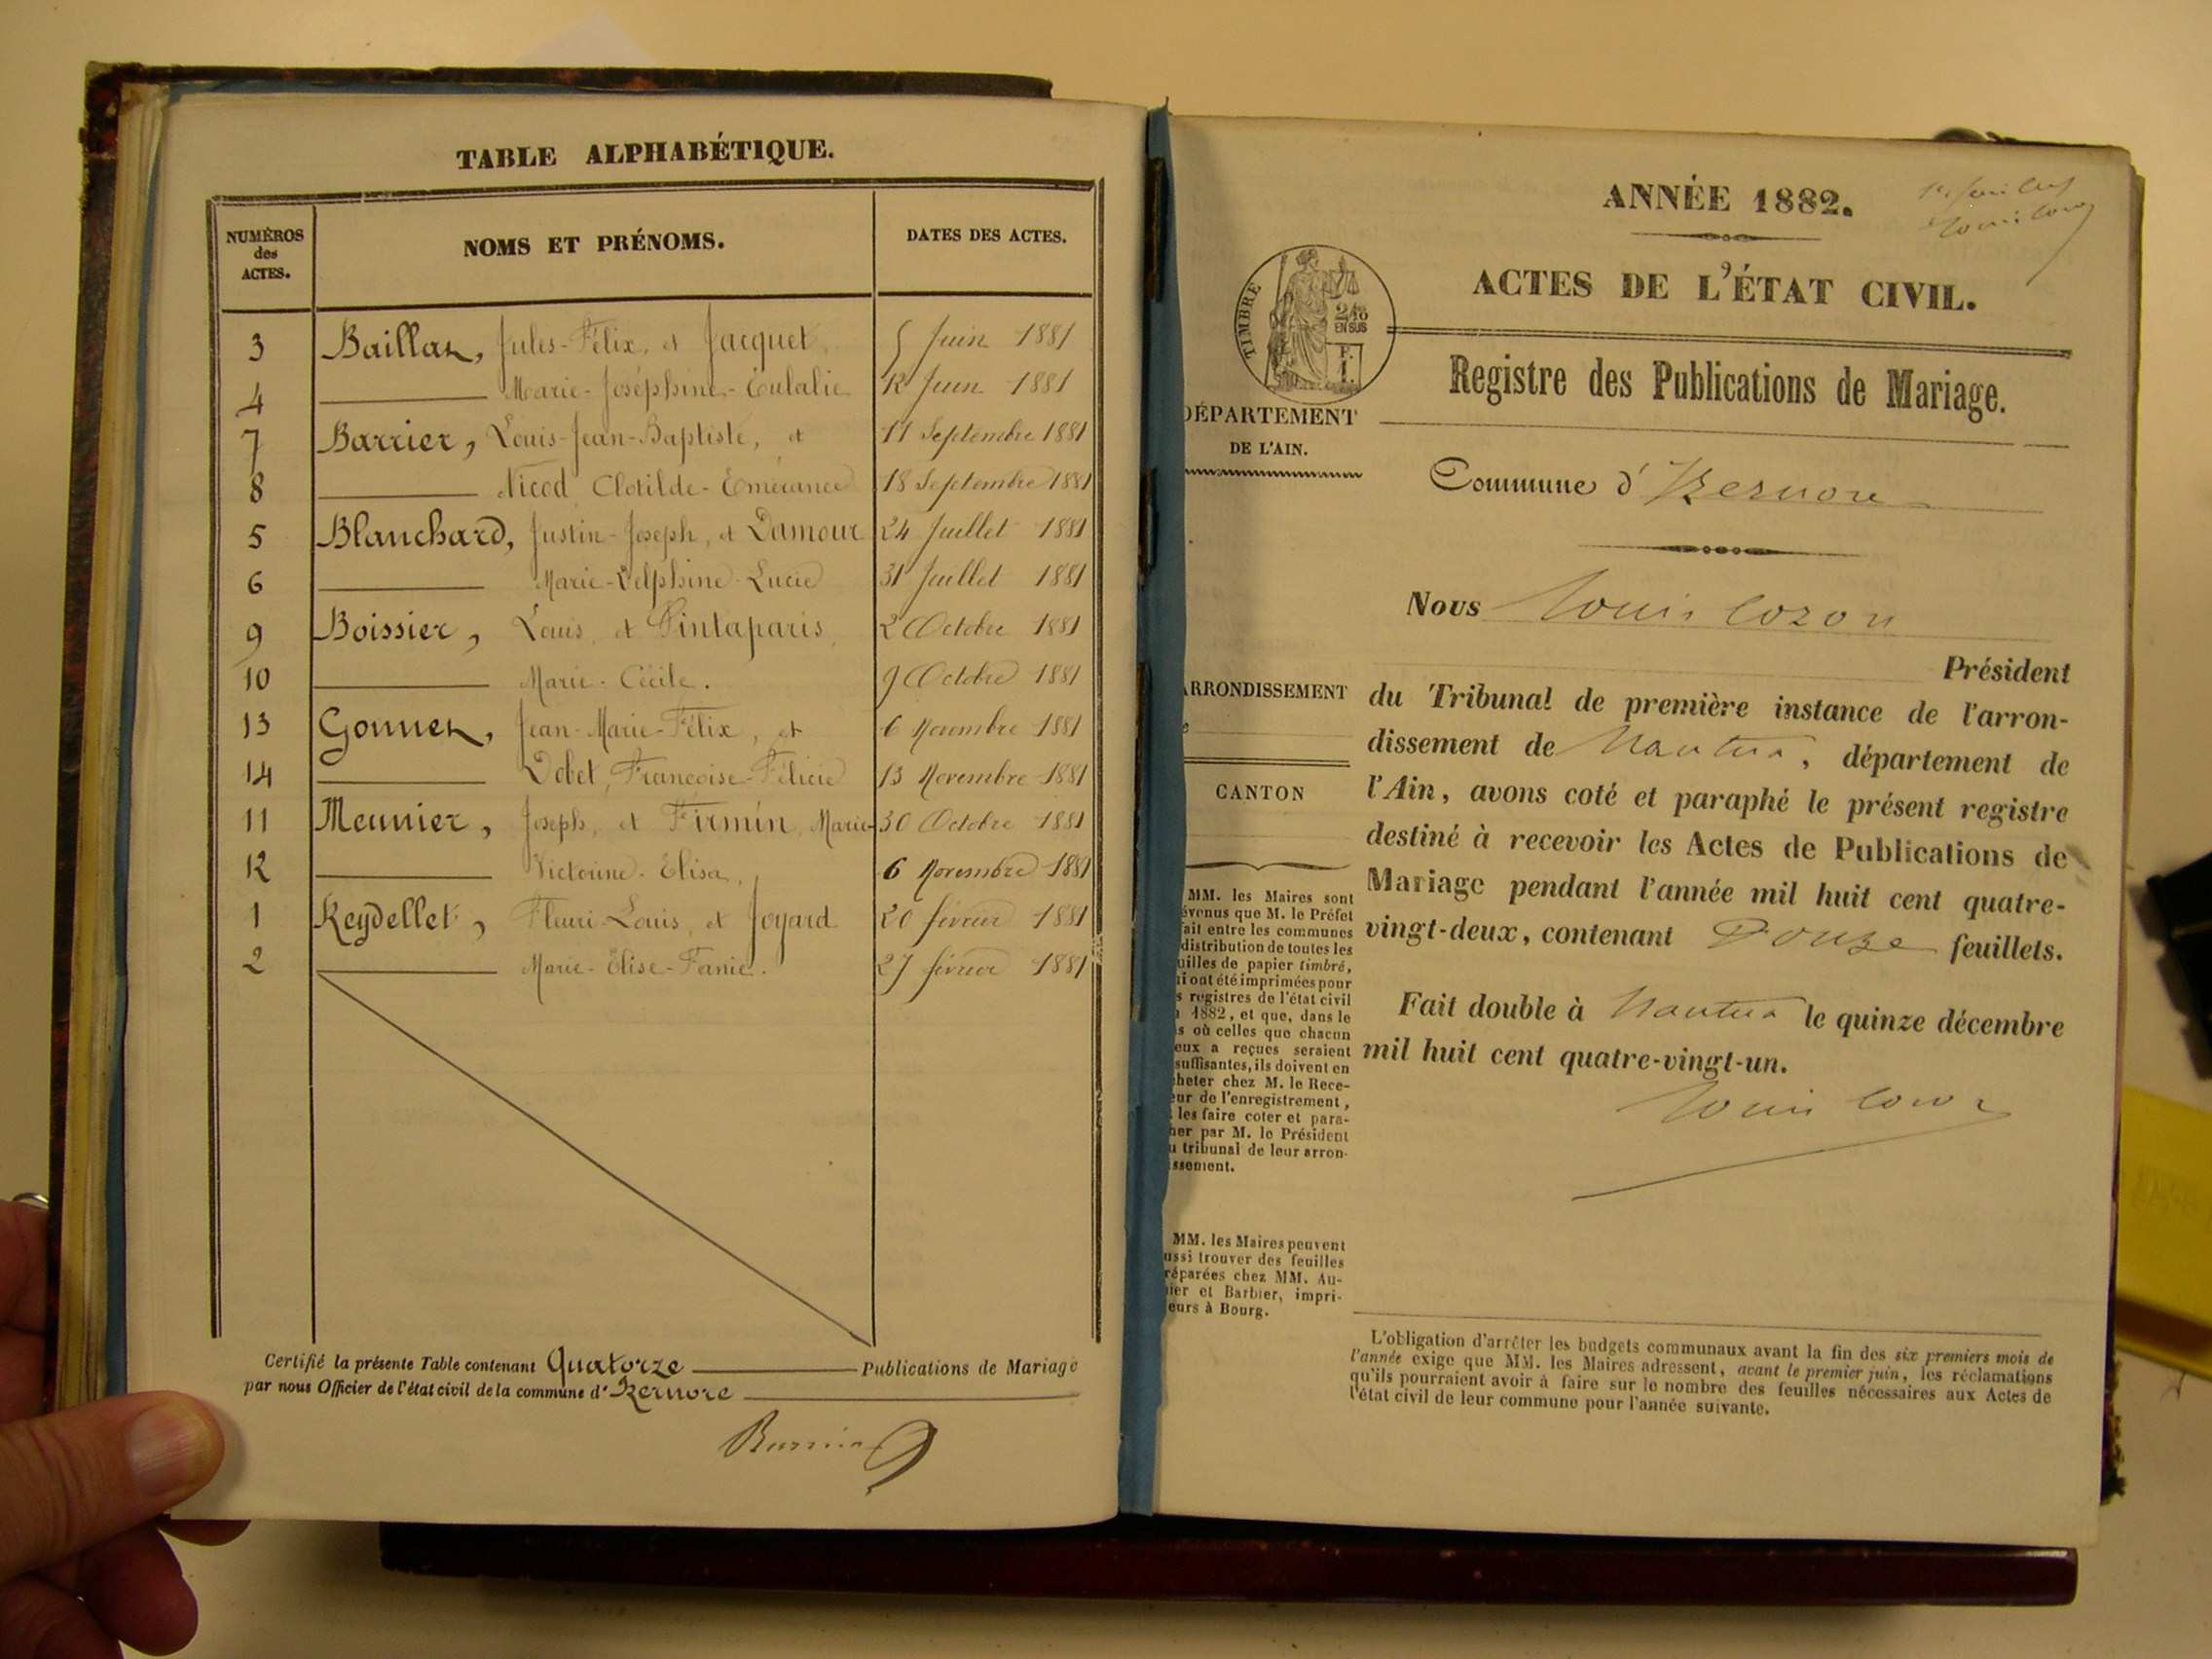 TABLE ALPHABÉTIQUE.
NUMÉROS des ACTES. NOMS ET PRÉNOMS. DATES DES ACTES.
3 Baillaz, Jules-Félix, et Jacquet, 5 Juin 1881
4 Marie-Joséphine-Eulalie 12 Juin 1881
7 Barrier, Louis-Jean-Baptiste, et 11 Septembre 1881
8 Nicod Clotilde-Emérance 18 Septembre 1881
5 Blanchard, Justin-Joseph, et Damour 24 Juillet 1881
6 Marie-Delphine-Lucie 31 Juillet 1881
9 Boissier, Louis, et Pintaparis, 2 Octobre 1881
10 Marie-Cécile. 9 Octobre 1881
13 Gonnez, Jean-Marie-Félix, et 6 Novembre 1881
14 Dobet, Françoise-Félicie 13 Novembre 1881
11 Meunier, Joseph, et Firmin, Marie- 30 Octobre 1881
12 Victorine-Elisa, 6 Novembre 1881
1 Reydellet, Fleuri-Louis, et Joyard 20 février 1881
2 Marie-Elise-Fanie. 27 février 1881
Certifié la présente Table contenant Quatorze Publications de Mariage
par nous Officier de l'état civil de la commune d' Izernore
ANNÉE 1882.
Louis Cozon
ACTES DE L'ÉTAT CIVIL.
TIMBRE
2/10
EN SUS
Registre des Publications de Mariage.
DÉPARTEMENT
DE L'AIN.
Commune d' Izernore
Nous Louis Cozon
Président
ARRONDISSEMENT
CANTON
du Tribunal de première instance de l'arron-
dissement de Nantua, département de
l'Ain, avons coté et paraphé le présent registre
destiné à recevoir les Actes de Publications de
Mariage pendant l'année mil huit cent quatre-
vingt-deux, contenant Douze feuillets.
Fait double à Nantua le quinze décembre
mil huit cent quatre-vingt-un.
Louis Cozon
MM. les Maires sont
évenus que M. le Préfet
ait entre les communes
distribution de toutes les
uilles de papier timbré,
i ont été imprimées pour
s registres de l'état civil
1882, et que, dans le
s où celles que chacun
eux a reçues seraient
suffisantes, ils doivent en
heter chez M. le Rece-
ur de l'enregistrement,
les faire coter et para-
her par M. le Président
u tribunal de leur arron-
ssement.
MM. les Maires peuvent
ussi trouver des feuilles
réparées chez MM. Au-
ier et Barbier, impri-
eurs à Bourg.
L'obligation d'arrêter les budgets communaux avant la fin des six premiers mois de
l'année exige que MM. les Maires adressent, avant le premier juin, les réclamations
qu'ils pourraient avoir à faire sur le nombre des feuilles nécessaires aux Actes de
l'état civil de leur commune pour l'année suivante.